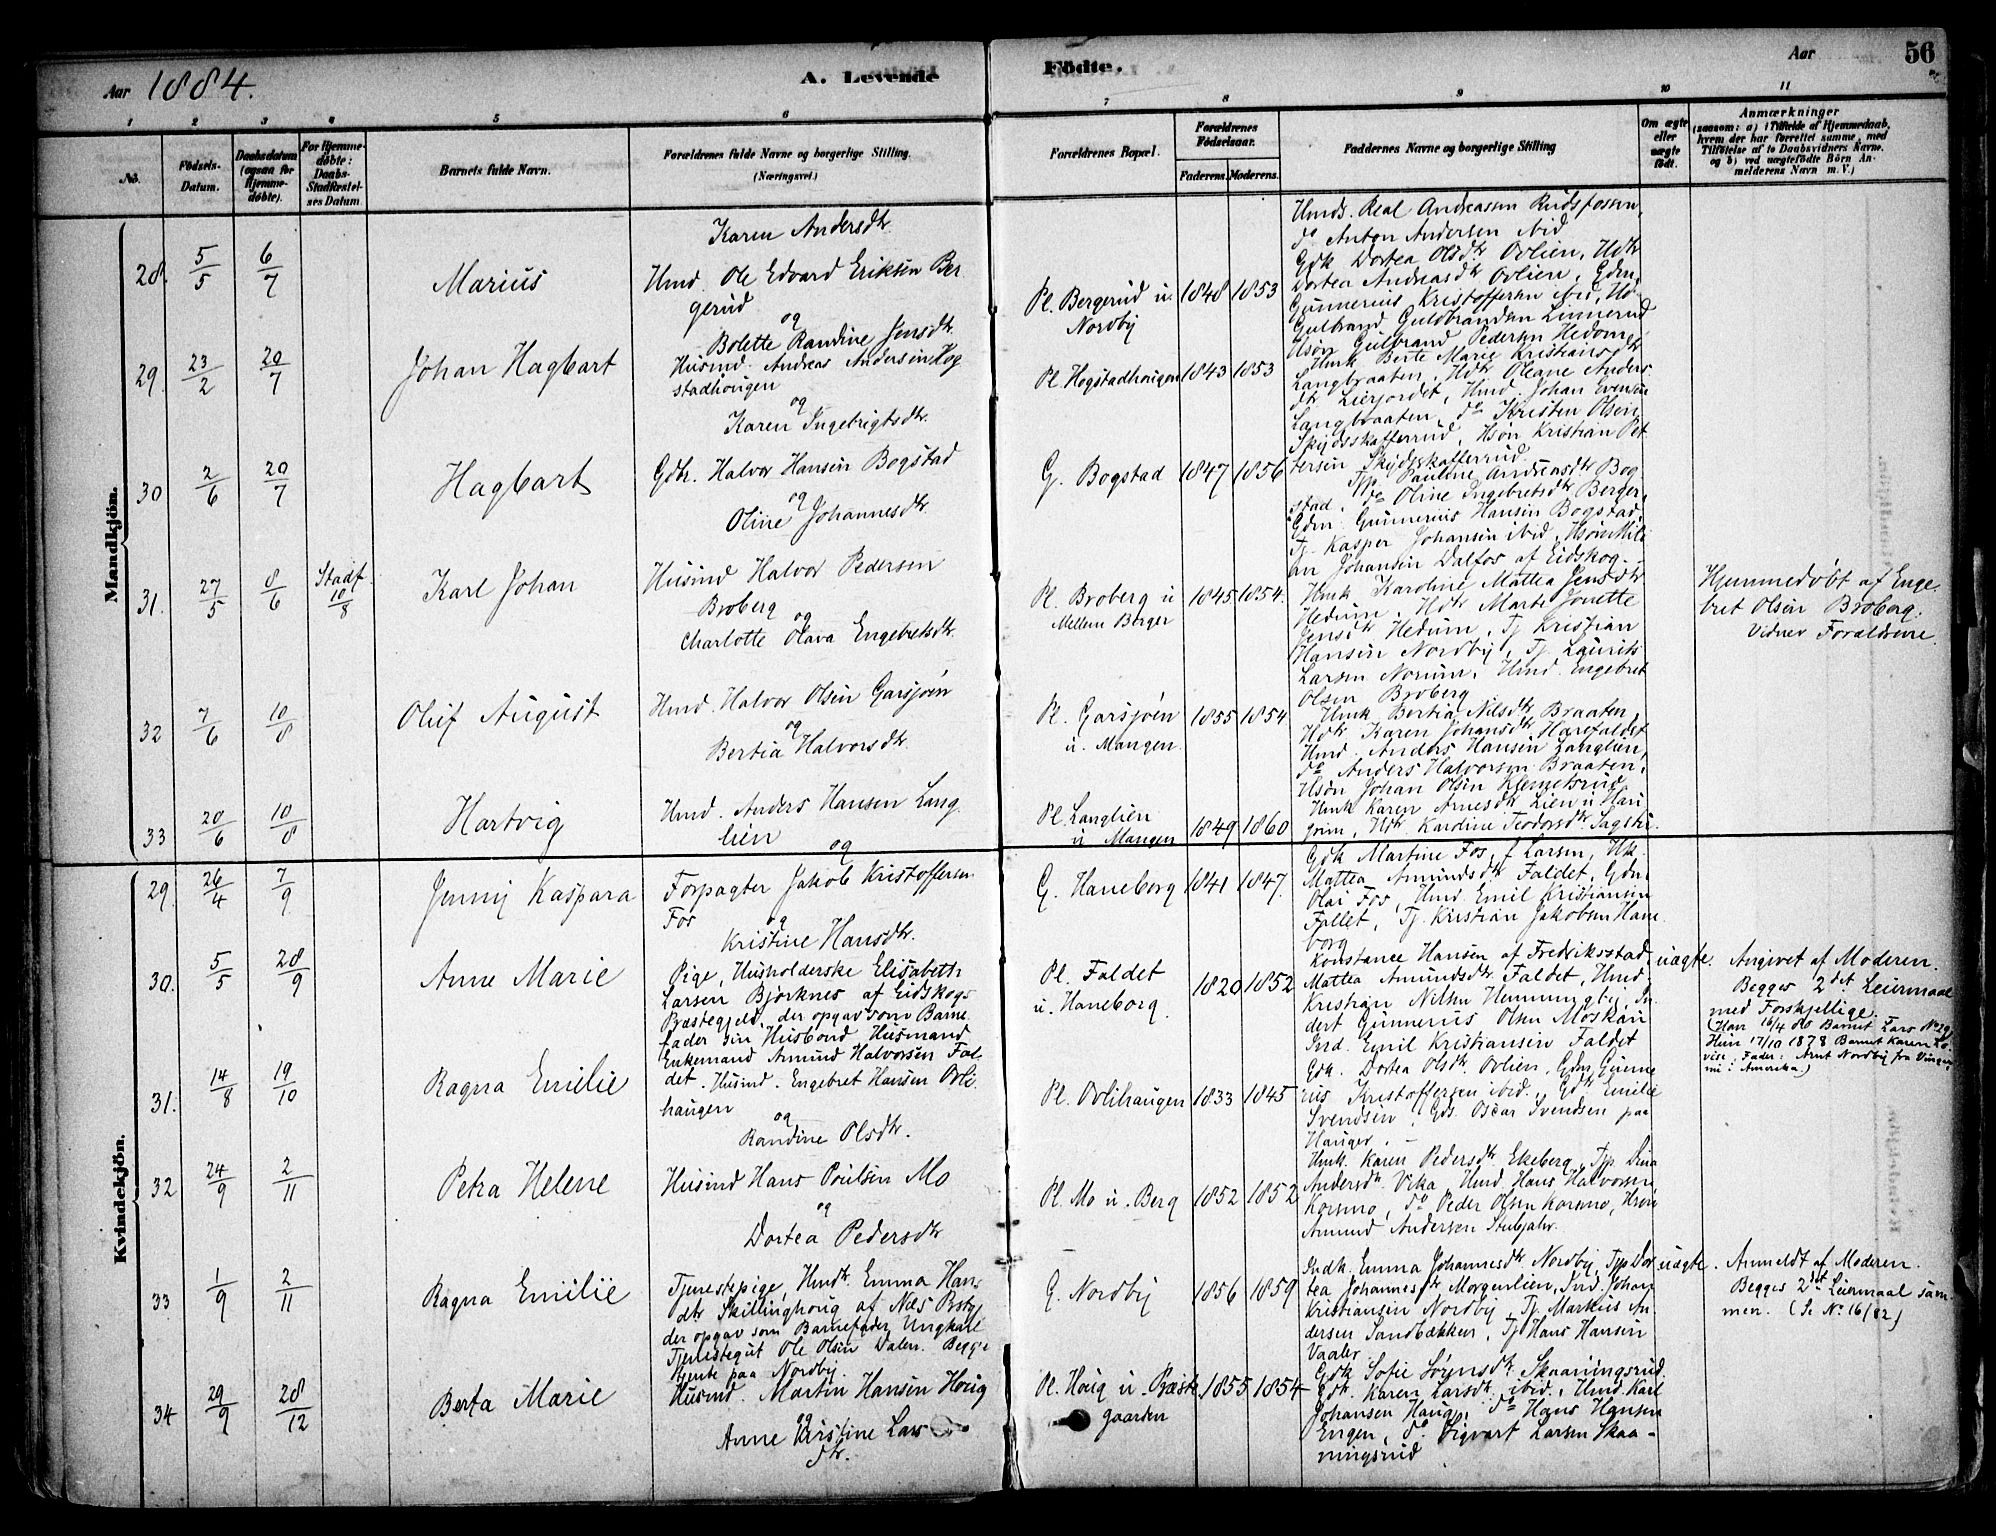 Aar 1884.
A. Levende
Födte.
Aar
56
1 2 3 4 5 6 7 8 9 10 11
No.
Födsels-
Datum.
Daabsdatum
(ogsaa for
Hjemme-
døbte).
For Hjemme-
døbte:
Daabs-
Stadfæstel-
ses Datum.
Barnets fulde Navn.
Forældrenes fulde Navne og borgerlige Stilling.
(Næringsvei.)
Forældrenes Bopæl.
Forældrenes
Fødselsaar.
Faderens. Moderens.
Faddernes Navne og borgerlige Stilling
Om ægte
eller
uægte
født.
Anmærkninger
(saasom: a) i Tilfælde af Hjemmedaab,
hvem der har forrettet samme, med
Tilføielse af to Daabsvidners Navne,
og b) ved uægtefødte Börn An-
melderens Navn m. V.)
Mandkjön.
Karen Andersdtr.
28. 5/5 6/7 Marius
Hmd. Ole Edvard Eriksen Ber
gerud
og
Bolette Randine Jensdtr.
Pl. Bergerud u.
Nordby
1848 1853
Hmds. Real Andreassen Rudsfossen,
do Anton Andersen ibid
Gdk Dortea Olsdtr Ovlien, Hdtr
Dortea Andreasdtr Ovlien, Gdm.
Gunnerius Kristoffersen ibid, Hd.
Gulbrand Guldbrandsen Linnerud
Hsøn Gulbrand Pedersen Hedom,
29. 23/2 20/7 Johan Hagbart
Husmd. Andreas Andersen Hog
stadhougen
og
Karen Ingebrigtsdtr.
Pl. Hogstadhougen 1843 1853
Hmk Berte Marie Kristiansdtr
Langbraaten, Hdtr Oleane Anders
dtr Lierjordet, Hmd. Johan Evensen
Langbraaten, do Kristen Olsen
Skydsskafferrud, Hsøn Kristian Pet
tersen Skydsskafferrud.
30 2/6 20/7 Hagbart
Gdbr. Halvor Hansen Bogstad
og
Oline Johannesdtr
G. Bogstad 1847 1856
Tjp. Pauline Andreasdtr Bog
stad, do Oline Ingebretsdtr Berger,
Gdm. Gunnerius Hansen Bogstad,
Tj. Kasper Johansen ibid, Hsøn Mili
an Johansen Dalfos af Eidskog.
31. 27/5 8/6 Stadf.
10/8
Karl Johan
Husmd Halvor Pedersen
Broberg og
Charlotte Olava Engebretsdtr.
Pl. Broberg u
Mellem Berger
1845 1854.
Hmk Karoline Mattea Jensdtr
Hedum, Hdtr Marte Jonette
Jensdtr Hedum, Tj Kristian
Hansen Nordby, Tj. Laurits
Larsen Norum, Hmd. Engebret
Olsen Broberg
Hjemmedøbt af Enge
bret Olsen Broberg.
Vidner Forældrene
32 7/6 10/8 Oluf August
Hmd. Halvor Olsen Garsjøen
og
Bertia Halvorsdtr.
Pl. Garsjøen
u. Mangen.
1855 1854
Hmk Bertia Nilsdtr Braaten,
Hdtr Karen Johansdtr Harefaldet
Hmd. Anders Hansen Langlien,
do Anders Halvorsen Braaten,
Hsøn Johan Olsen Klemetsrud
33 20/6 10/8 Hartvig
Hmd. Anders Hansen Lang
lien og
Pl. Langlien
u Mangen
1849 1860
Hmk Karen Arnesdtr Lien u Hau
grim, Hdtr Karoline Teodorsdtr Sagstu.
Kvindekjön.
29. 26/4 7/9 Jenny Kaspara
Forpagter Jakob Kristoffersen
Fos
og
Kristine Hansdtr.
G. Haneborg 1841 1847.
Gdk Martine Fos, f Larsen, Hk.
Mattea Amundsdtr Faldet, Gdm.
Olai Fos, Hmd. Emil Kristiansen
Fallet, Tj. Kristian Jakobsen Hane
borg
30. 5/5 28/9 Anne Marie
Pige, Husholderske Elisabeth
Larsen Bjørknes af Eidskogs
Præstegjeld, der opgav som Barne
fader sin Husbond Husmand
Enkemand Amund Halvorsen Fal-
det.
Pl. Faldet
u. Haneborg.
1820 1852
Konstance Hansen af Fredriksstad
Mattea Amundsdtr. Faldet, Hmd
Kristian Nilsen Hemmingby, In
derst Gunnerius Olsen Moskau
Ind. Emil Kristiansen Faldet
uægte.
Angivet af Moderen.
Begges 2det Leiermaal
med Forskjellige.
(Han 16/4 80 Barnet Lars No 29
Hun 17/10 1878 Barnet Karen Lo
vise; Fader: Arnt Nordby fra Vinger
nu i Amerika.)
31. 14/8 19/10 Ragna Emilie
Husmd. Engebret Hansen Ovli
haugen
og
Randine Olsdtr.
Pl. Ovlihaugen 1833 1845
Gdk. Dortea Olsdtr. Ovlien, Gdm. Gunne
rius Kristoffersen ibid., Gdtr Emilie
Svendsen, Gds. Oscar Svendsen paa
Hauger. –
32 24/9 2/11 Petra Helene
Husmd Hans Poulsen Mo
og
Dortea Pedersdtr
Pl. Mo u. Berg 1852 1852
Hmk. Karen Pedersdtr. Ekeberg, Tjp Dina
Andersdtr. Vika, Hmd. Hans Halvorsen
Korsmo, do Peder Olsen Korsmo, Hsøn
Amund Andersen Stubjahr.
33 1/9 2/11 Ragna Emilie
Tjenestepige, Hmdtr. Emma Hans
dtr Skillinghoug af Næs Prstgj
der opgav som Barnefader Ungkarl
Tjenestegut Ole Olsen Dalen. Begge
tjente paa Nordby.
G. Nordby 1856 1859
Indk. Emma Johannesdtr Nordby, Tjp Dor
tea Johannesdtr Morgenlien, Ind. Johan
Kristiansen Nordby, Tj. Markus An
dersen Sandbækken, Tj Hans Hansen
Vaaler
uægte.
Anmeldt af Moderen.
Begges 2det Leiermaal sam
men. (Se No 16/82)
34. 29/9 28/12 Berta Marie
Husmd. Martin Hansen Houg
og
Anne Kristine Lars
dtr.
Pl. Houg u. Præste
gaarden
1855 1854
Gdk Sofie Sørensdtr. Skaaningsrud
Gdtr. Karen Larsdtr. ibid., Hmd. Karl
Johansen Haug, do Hans Hansen
Engen, do Sigvart Larsen Skaa-
ningsrud